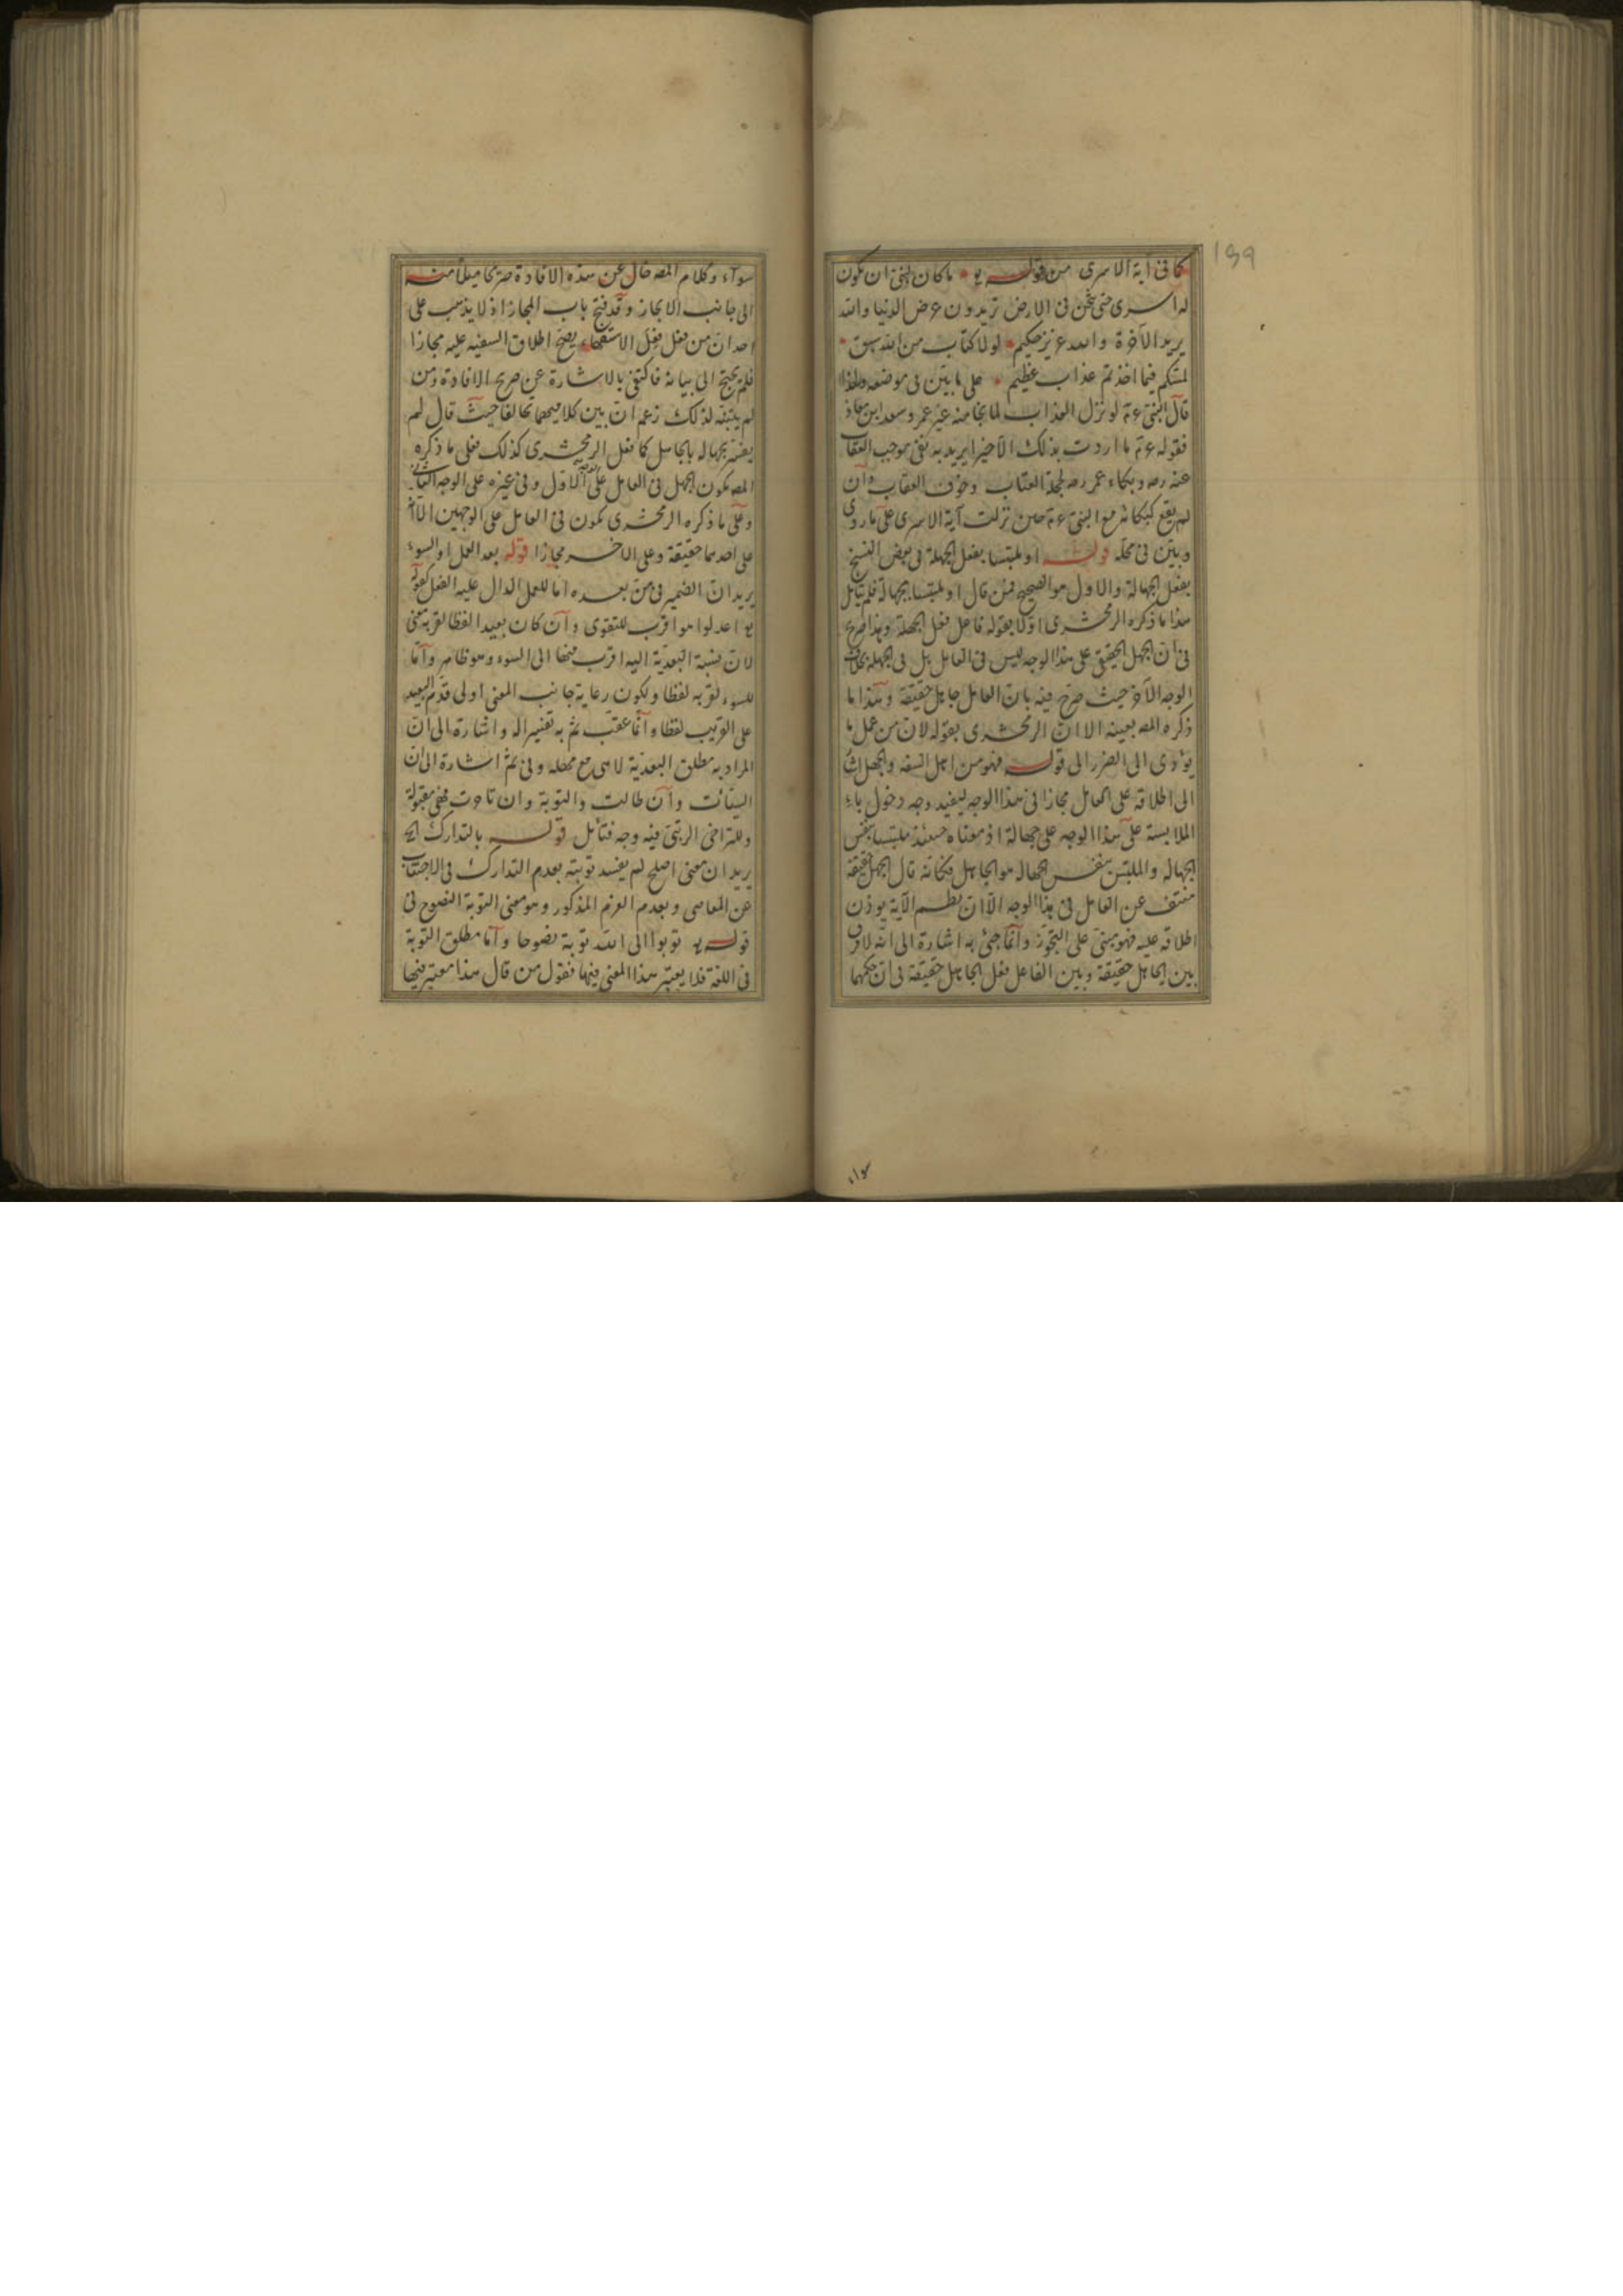 ١٩٩
كما فى آية الاسرى من قوله تع ما كان لنبى ان تكون
له اسرى حتى يثخن فى الارض تريدون عرض الدنيا والله
يريد الآخرة والله عزيز حكيم لولا كتاب من الله سبق
لمسكم فيما اخذتم عذاب عظيم على ما بين فى موضعه ولهذا
قال النبى عم لو نزل العذاب لما نجا منه غير عمر وسعد ابن معاذ
فقوله عم ما اردت بذلك الا خيرا يريد به نفى موجب العقاب
عنه رضه وبكاء عمر رضه لجهة العتاب وخوف العقاب وان
لم يقع كبكائه مع النبى عم حين نزلت آية الاسرى على ما روى
وبين فى محله قوله او ملتبسا بفعل الجهلة فى بعض النسخ
بفعل الجهالة والاول هو الصحيح فمن قال او ملتبسا بجهالة فلم يتأمل
هذا ما ذكره الزمخشرى اولا بقوله فاعل فعل الجهلة وهذا صريح
فى ان الجهل الحقيقى على هذا الوجه ليس فى العامل بل فى الجهلة بخلاف
الوجه الآخر حيث صرح فيه بان العامل جاهل حقيقة وهذا ما
ذكره المصه بعينه الا ان الزمخشرى بقوله لان من عمل ما
يؤدى الى الضرر الى قوله فهو من اهل السفه والجهل اشار
الى اطلاقه على العامل مجازا فى هذا الوجه ليفيد وجه دخول باء
الملابسة على هذا الوجه على جهالة اذ معناه حينئذ ملتبسا بنفس
الجهالة والملتبس بنفس الجهالة هو الجاهل فكانه قال الجهل حقيقة
منتف عن العامل فى هذا الوجه الا ان نظم الآية يوذن
اطلاقه عليه فهو مبنى على التجوز وانما جئ به اشارة الى انه لا فرق
بين الجاهل حقيقة وبين الفاعل فعل الجاهل حقيقة فى ان حكمهما
سواء
سواء وكلام المصه خال عن هذه الافادة صريحا ميلا منه
الى جانب الايجاز وقد فتح باب المجاز اذ لا يذهب على
احد ان من فعل فعل السفهاء يصح اطلاق السفيه عليه مجازا
فلم يحتج الى بيانه فاكتفى بالاشارة عن صريح الافادة ومن
لم يتنبه لذلك زعم ان بين كلاميهما تخالفا حيث قال لم
يفسر بجهالة بالجاهل كما فعل الزمخشرى كذلك فعلى ما ذكره
المصه يكون الجهل فى العامل على الوجه الاول وفى غيره على الوجه الثانى
وعلى ما ذكره الزمخشرى يكون فى العامل على الوجهين الا انه
على احدهما حقيقة وعلى الاخر مجازا قوله بعد العمل او السوء
يريد ان الضمير فى من بعده اما للعمل الدال عليه الفعل كقوله
تع اعدلوا هو اقرب للتقوى وان كان بعيدا لفظا لقربه معنى
لان نسبة البعدية اليه اقرب منها الى السوء وهو ظاهر واما
للسوء لقربه لفظا ولكون رعاية جانب المعنى اولى قدم البعيد
على القريب لفظا وانما عقب ثم به تفسيرا له واشارة الى ان
المراد به مطلق البعدية لا هى مع مهلة وفى ثم اشارة الى ان
السيئات وان طالت والتوبة وان تاخرت فهى مقبولة
وللتراخى الرتبى فيه وجه فتأمل قوله بالتدارك الخ
يريد ان معنى اصلح لم يفسد توبته بعدم التدارك فى الاجتناب
عن المعاصى وبعدم العزم المذكور وهو معنى التوبة النصوح فى
قوله تع توبوا الى الله توبة نصوحا واما مطلق التوبة
فى اللغة فلا يعتبر هذا المعنى فيها فقول من قال هذا معتبر فيها